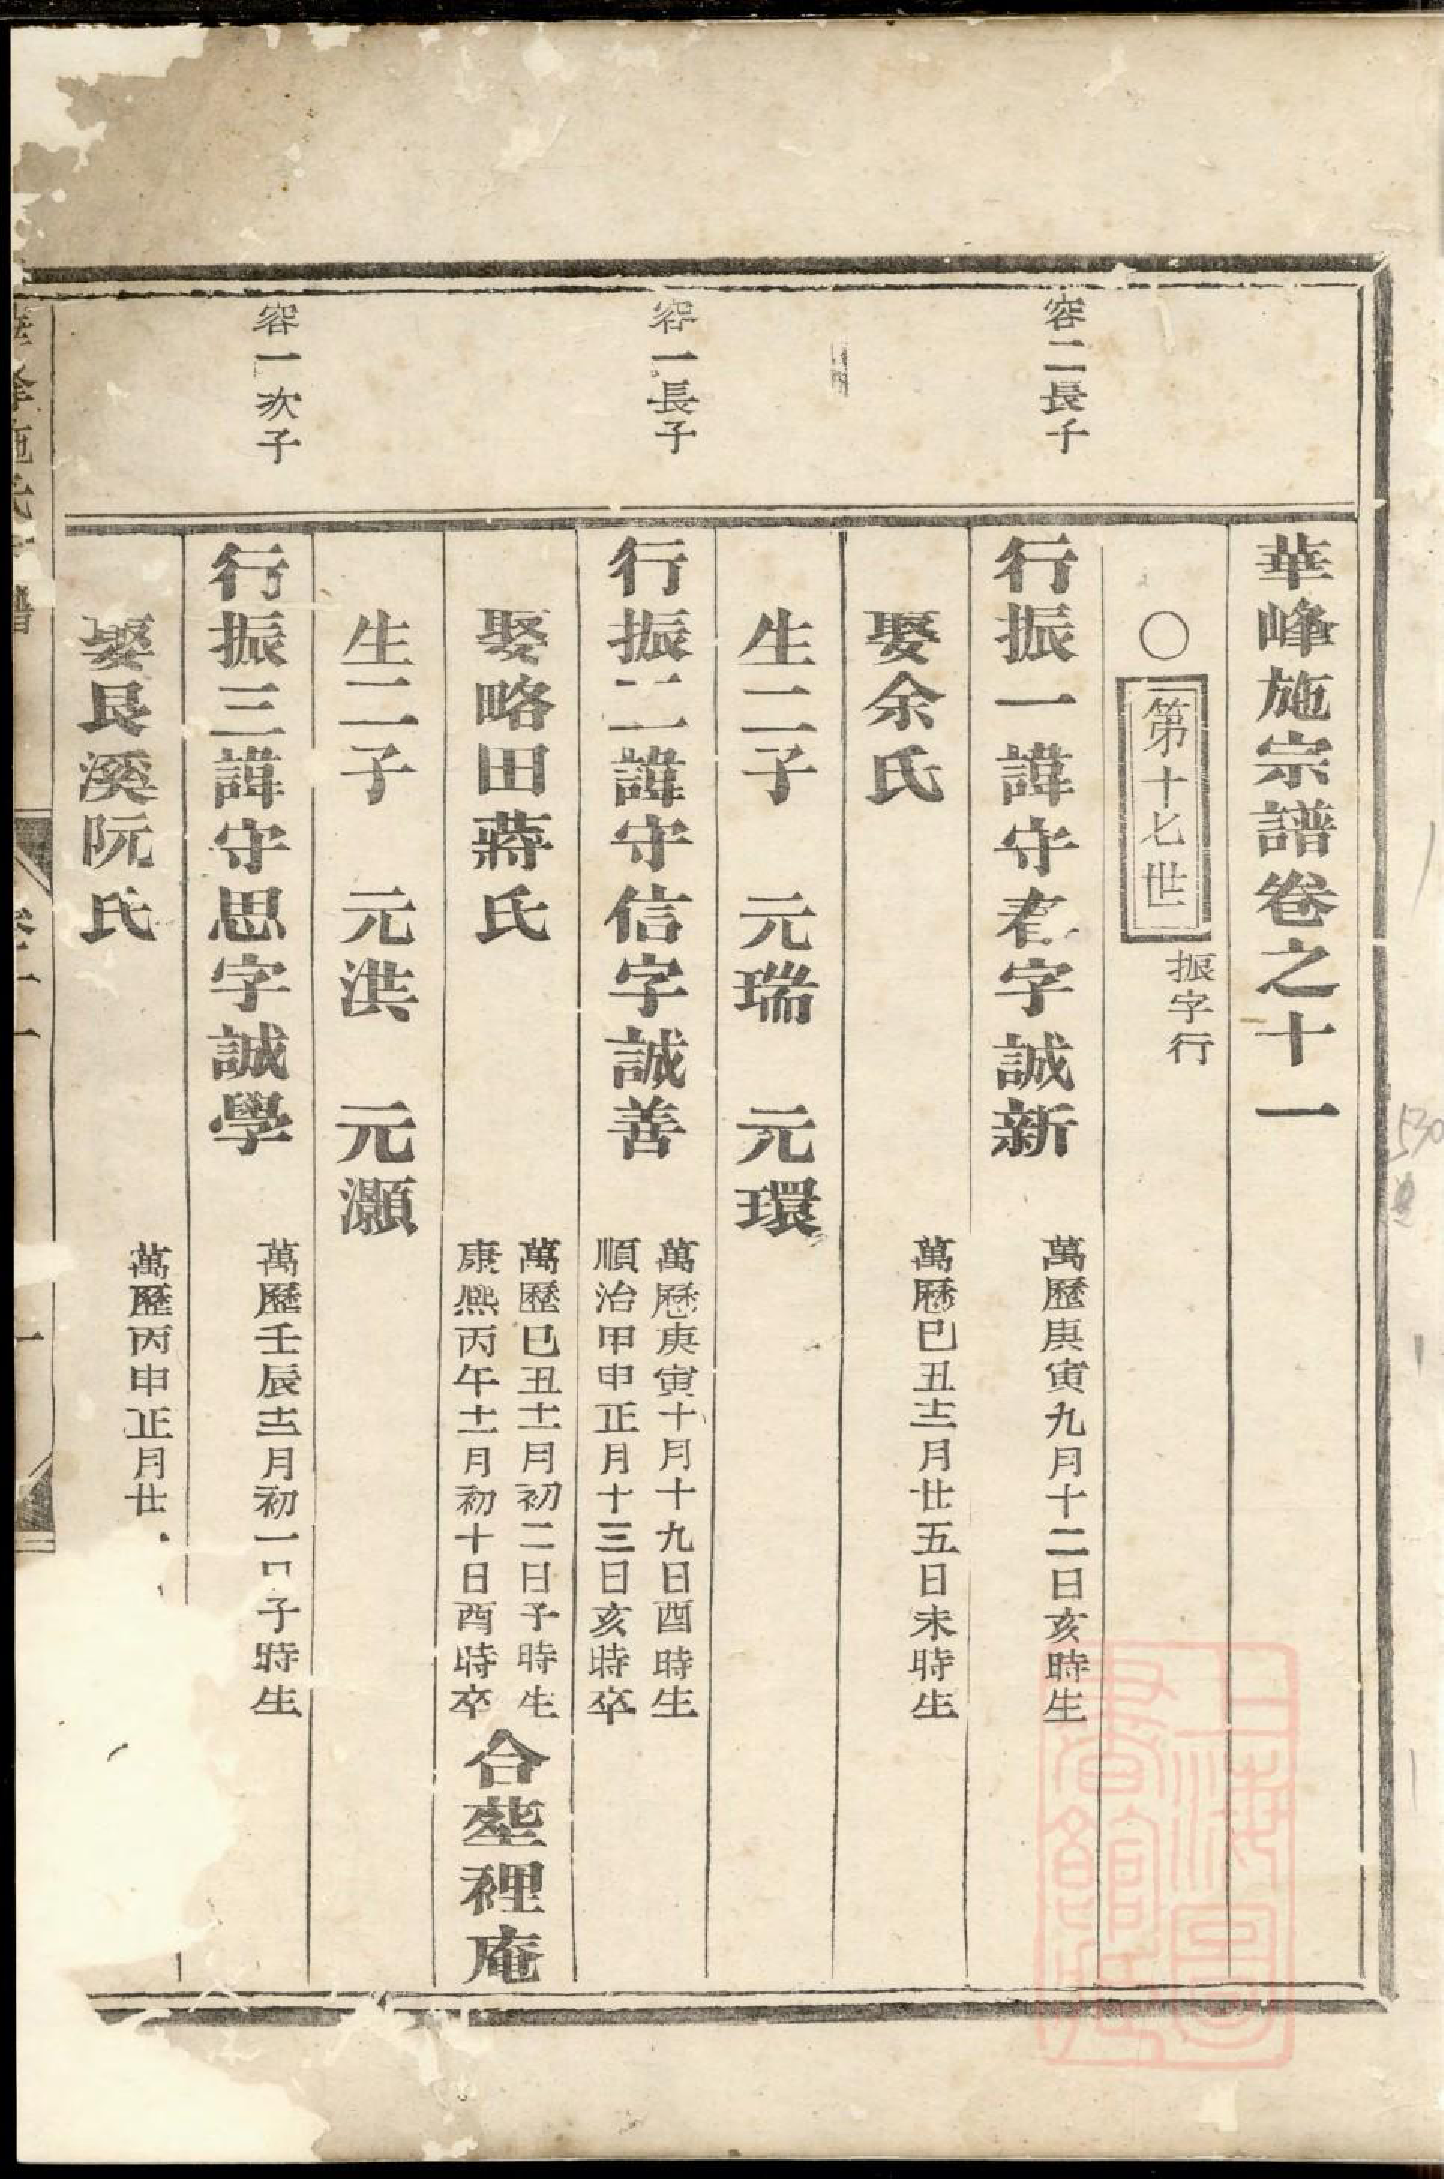 華峰施宗譜卷之十一
〇第十七世 振字行
容二長子
行振一諱守春字誠新 萬歷庚寅九月十二日亥時生
娶余氏 萬歷巳丑十二月廿五日未時生
生二子 元瑞 元環
容一長子
行振二諱守信字誠善 萬歷庚寅十月十九日酉時生
順治甲申正月十三日亥時卒
娶略田蔣氏 萬歷巳丑十一月初二日子時生
康熙丙午十一月初十日酉時卒
合塟裡庵
生二子 元洪 元灝
容一次子
行振三諱守思字誠學 萬歷壬辰十二月初一日子時生
娶艮溪阮氏 萬歷丙申正月廿
上海圖書館藏